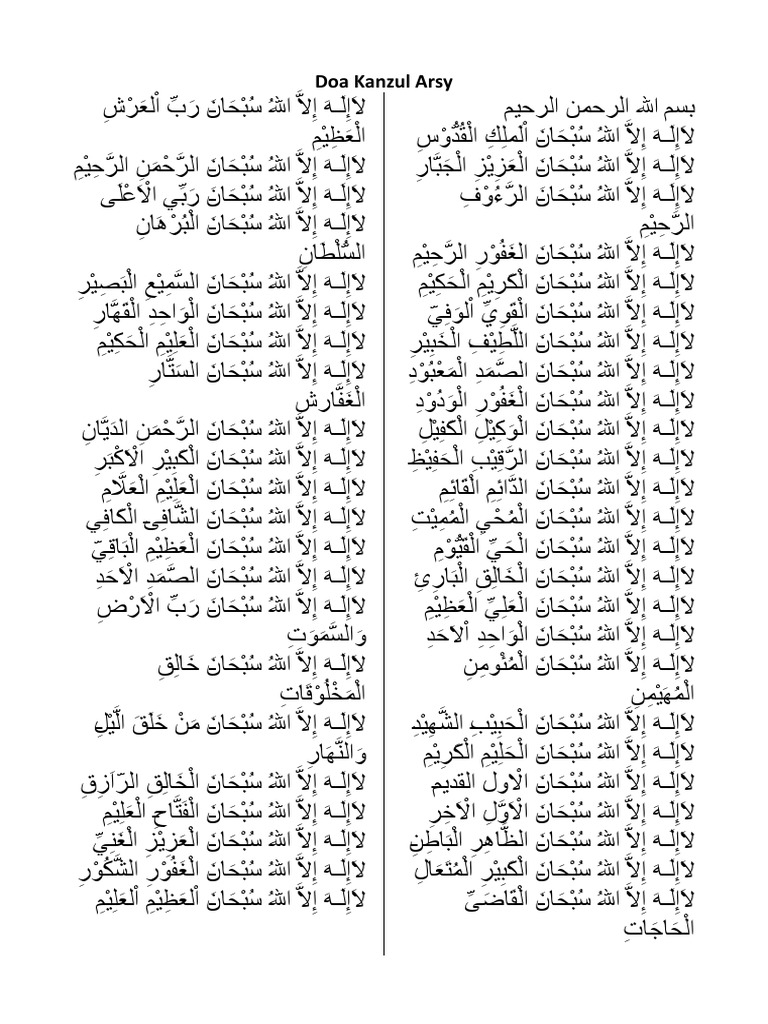 Doa Kanzul Arsy
بسم الله الرحمن الرحيم
لاَإِلَـهَ إِلاَّ اللهُ سُبْحَانَ اْلمَلِكِ الْقُدُّوْسِ
لاَإِلَـهَ إِلاَّ اللهُ سُبْحَانَ الْعَزِيْزِ الْجَبَّارِ
لاَإِلَـهَ إِلاَّ اللهُ سُبْحَانَ الرَّءُوْفِ
الرَّحِيْمِ
لاَإِلَـهَ إِلاَّ اللهُ سُبْحَانَ الغَفُوْرِ الرَّحِيْمِ
لاَإِلَـهَ إِلاَّ اللهُ سُبْحَانَ الْكَرِيْمِ الْحَكِيْمِ
لاَإِلَـهَ إِلاَّ اللهُ سُبْحَانَ الْقَوِيِّ اْلوَفِيِّ
لاَإِلَـهَ إِلاَّ اللهُ سُبْحَانَ اللَّطِيْفِ الْخَبِيْرِ
لاَإِلَـهَ إِلاَّ اللهُ سُبْحَانَ الصَّمَدِ الْمَعْبُوْدِ
لاَإِلَـهَ إِلاَّ اللهُ سُبْحَانَ الْغَفُوْرِ الْوَدُوْدِ
لاَإِلَـهَ إِلاَّ اللهُ سُبْحَانَ الْوَكِيْلِ الْكَفِيْلِ
لاَإِلَـهَ إِلاَّ اللهُ سُبْحَانَ الرَّقِيْبِ الْحَفِيْظِ
لاَإِلَـهَ إِلاَّ اللهُ سُبْحَانَ الدَّائِمِ الْقَائِمِ
لاَإِلَـهَ إِلاَّ اللهُ سُبْحَانَ الْمُحْيِ الْمُمِيْتِ
لاَإِلَـهَ إِلاَّ اللهُ سُبْحَانَ الْحَيِّ الْقَيُّوْمِ
لاَإِلَـهَ إِلاَّ اللهُ سُبْحَانَ الْخَالِقِ الْبَارِئِ
لاَإِلَـهَ إِلاَّ اللهُ سُبْحَانَ الْعَلِيِّ الْعَظِيْمِ
لاَإِلَـهَ إِلاَّ اللهُ سُبْحَانَ الْوَاحِدِ اْلاَحَدِ
لاَإِلَـهَ إِلاَّ اللهُ سُبْحَانَ الْمُئْومِنِ
الْمُهَيْمِنِ
لاَإِلَـهَ إِلاَّ اللهُ سُبْحَانَ الْحَبِيْبِ الشَّهِيْدِ
لاَإِلَـهَ إِلاَّ اللهُ سُبْحَانَ الْحَلِيْمِ الْكَرِيْمِ
لاَإِلَـهَ إِلاَّ اللهُ سُبْحَانَ الْاول القديم
لاَإِلَـهَ إِلاَّ اللهُ سُبْحَانَ الْاَوَّلِ الْاَخِرِ
لاَإِلَـهَ إِلاَّ اللهُ سُبْحَانَ الظَّاهِرِ الْبَاطِنِ
لاَإِلَـهَ إِلاَّ اللهُ سُبْحَانَ الْكَبِيْرِ الْمُتَعَالِ
لاَإِلَـهَ إِلاَّ اللهُ سُبْحَانَ الْقَاضَىِّ
الْحَاجَاتِ
لاَإِلَـهَ إِلاَّ اللهُ سُبْحَانَ رَبِّ اْلعَرْشِ
الْعَظِيْمِ
لاَإِلَـهَ إِلاَّ اللهُ سُبْحَانَ الرَّحْمَنِ الرَّحِيْمِ
لاَإِلَـهَ إِلاَّ اللهُ سُبْحَانَ رَبِّي الْاَعْلَى
لاَإِلَـهَ إِلاَّ اللهُ سُبْحَانَ الْبُرْهَانِ
السُّلْطَانِ
لاَإِلَـهَ إِلاَّ اللهُ سُبْحَانَ السَّمِيْعِ الْبَصِيْرِ
لاَإِلَـهَ إِلاَّ اللهُ سُبْحَانَ الْوَاحِدِ الْقَهَّارِ
لاَإِلَـهَ إِلاَّ اللهُ سُبْحَانَ الْعَلِيْمِ الْحَكِيْمِ
لاَإِلَـهَ إِلاَّ اللهُ سُبْحَانَ السَتَّارِ
الْغَفَّارِش
لاَإِلَـهَ إِلاَّ اللهُ سُبْحَانَ الرَّحْمَنِ الدَيَّانِ
لاَإِلَـهَ إِلاَّ اللهُ سُبْحَانَ الْكَبِيْرِ الْاَكْبَرِ
لاَإِلَـهَ إِلاَّ اللهُ سُبْحَانَ الْعَلِيْمِ الْعَلاَّمِ
لاَإِلَـهَ إِلاَّ اللهُ سُبْحَانَ الشَّافِى الْكَافِي
لاَإِلَـهَ إِلاَّ اللهُ سُبْحَانَ الْعَظِيْمِ الْبَاقِيِّ
لاَإِلَـهَ إِلاَّ اللهُ سُبْحَانَ الصَّمَدِ الْاَحَدِ
لاَإِلَـهَ إِلاَّ اللهُ سُبْحَانَ رَبِّ الْاَرْضِ
وَالسَّمَوَتِ
لاَإِلَـهَ إِلاَّ اللهُ سُبْحَانَ خَالِقِ
الْمَخْلُوْقَاتِ
لاَإِلَـهَ إِلاَّ اللهُ سُبْحَانَ مَنْ خَلَقَ الَّيْلِ
وَالنَّهَارِ
لاَإِلَـهَ إِلاَّ اللهُ سُبْحَانَ الْخَالِقِ الرَّازِقِ
لاَإِلَـهَ إِلاَّ اللهُ سُبْحَانَ الْفَتَّاحِ الْعَلِيْمِ
لاَإِلَـهَ إِلاَّ اللهُ سُبْحَانَ الْعَزِيْزِ الْغَنِيِّ
لاَإِلَـهَ إِلاَّ اللهُ سُبْحَانَ الْغَفُوْرِ الشَّكُوْرِ
لاَإِلَـهَ إِلاَّ اللهُ سُبْحَانَ اْلعَظِيْمِ اْلعَلِيْمِ